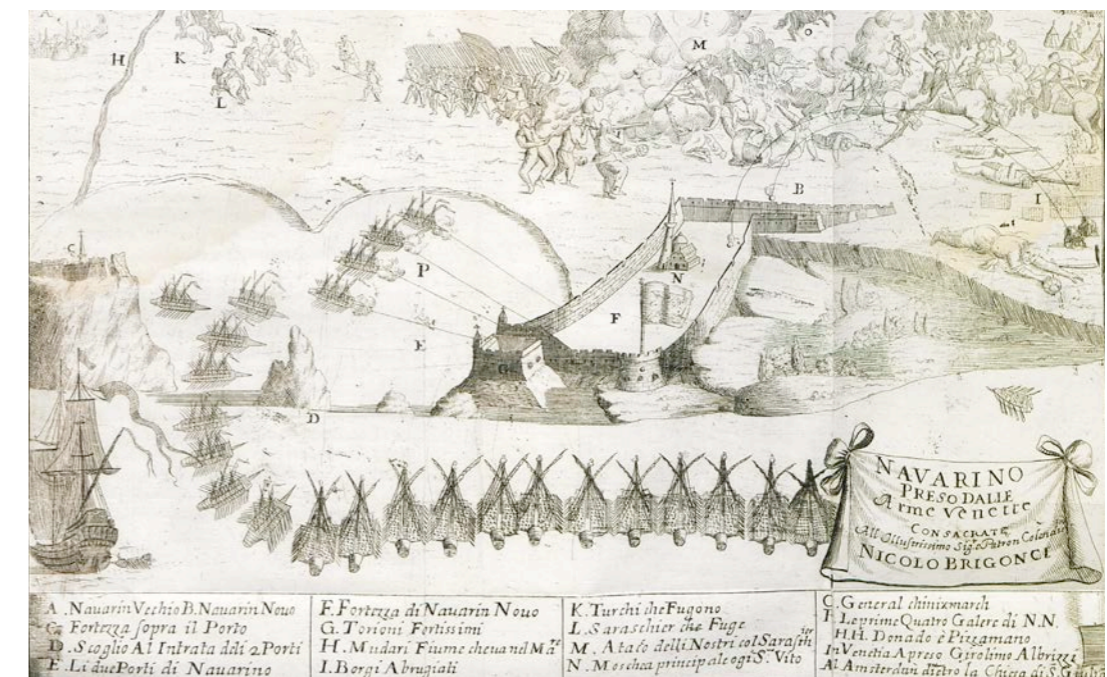 A
H
K
L
M
O
B
I
C
P
N
E
F
G
D
NAVARINO
PRESO DALLE
Arme Venette
CONSACRATE
All Illustrissimo Sig.
NICOLO BRIGONCE
A. Navarin Vechio B. Navarin Novo
C. Fortezza sopra il Porto
D. Scoglio Al Intrata deli 2 Porti
E. Li due Porti di Navarino
F. Fortezza di Navarin Novo
G. Torioni Fortissimi
H. Mudari Fiume che va nel Ma.re
I. Borgi Abrugiati
K. Turchi che Fugono
L. Saraschier che Fuge
M. Ataco delli Nostri col Sarasier
N. Moschea principale ogi S. Vito
General chinixmarch
Le prime Quatro Galere di N.N.
H.H. Donado è Pizzamano
In Venetia Apreso Girolimo Albrizzi
Al Amsterdan dietro la Chiesa di S. Giulia